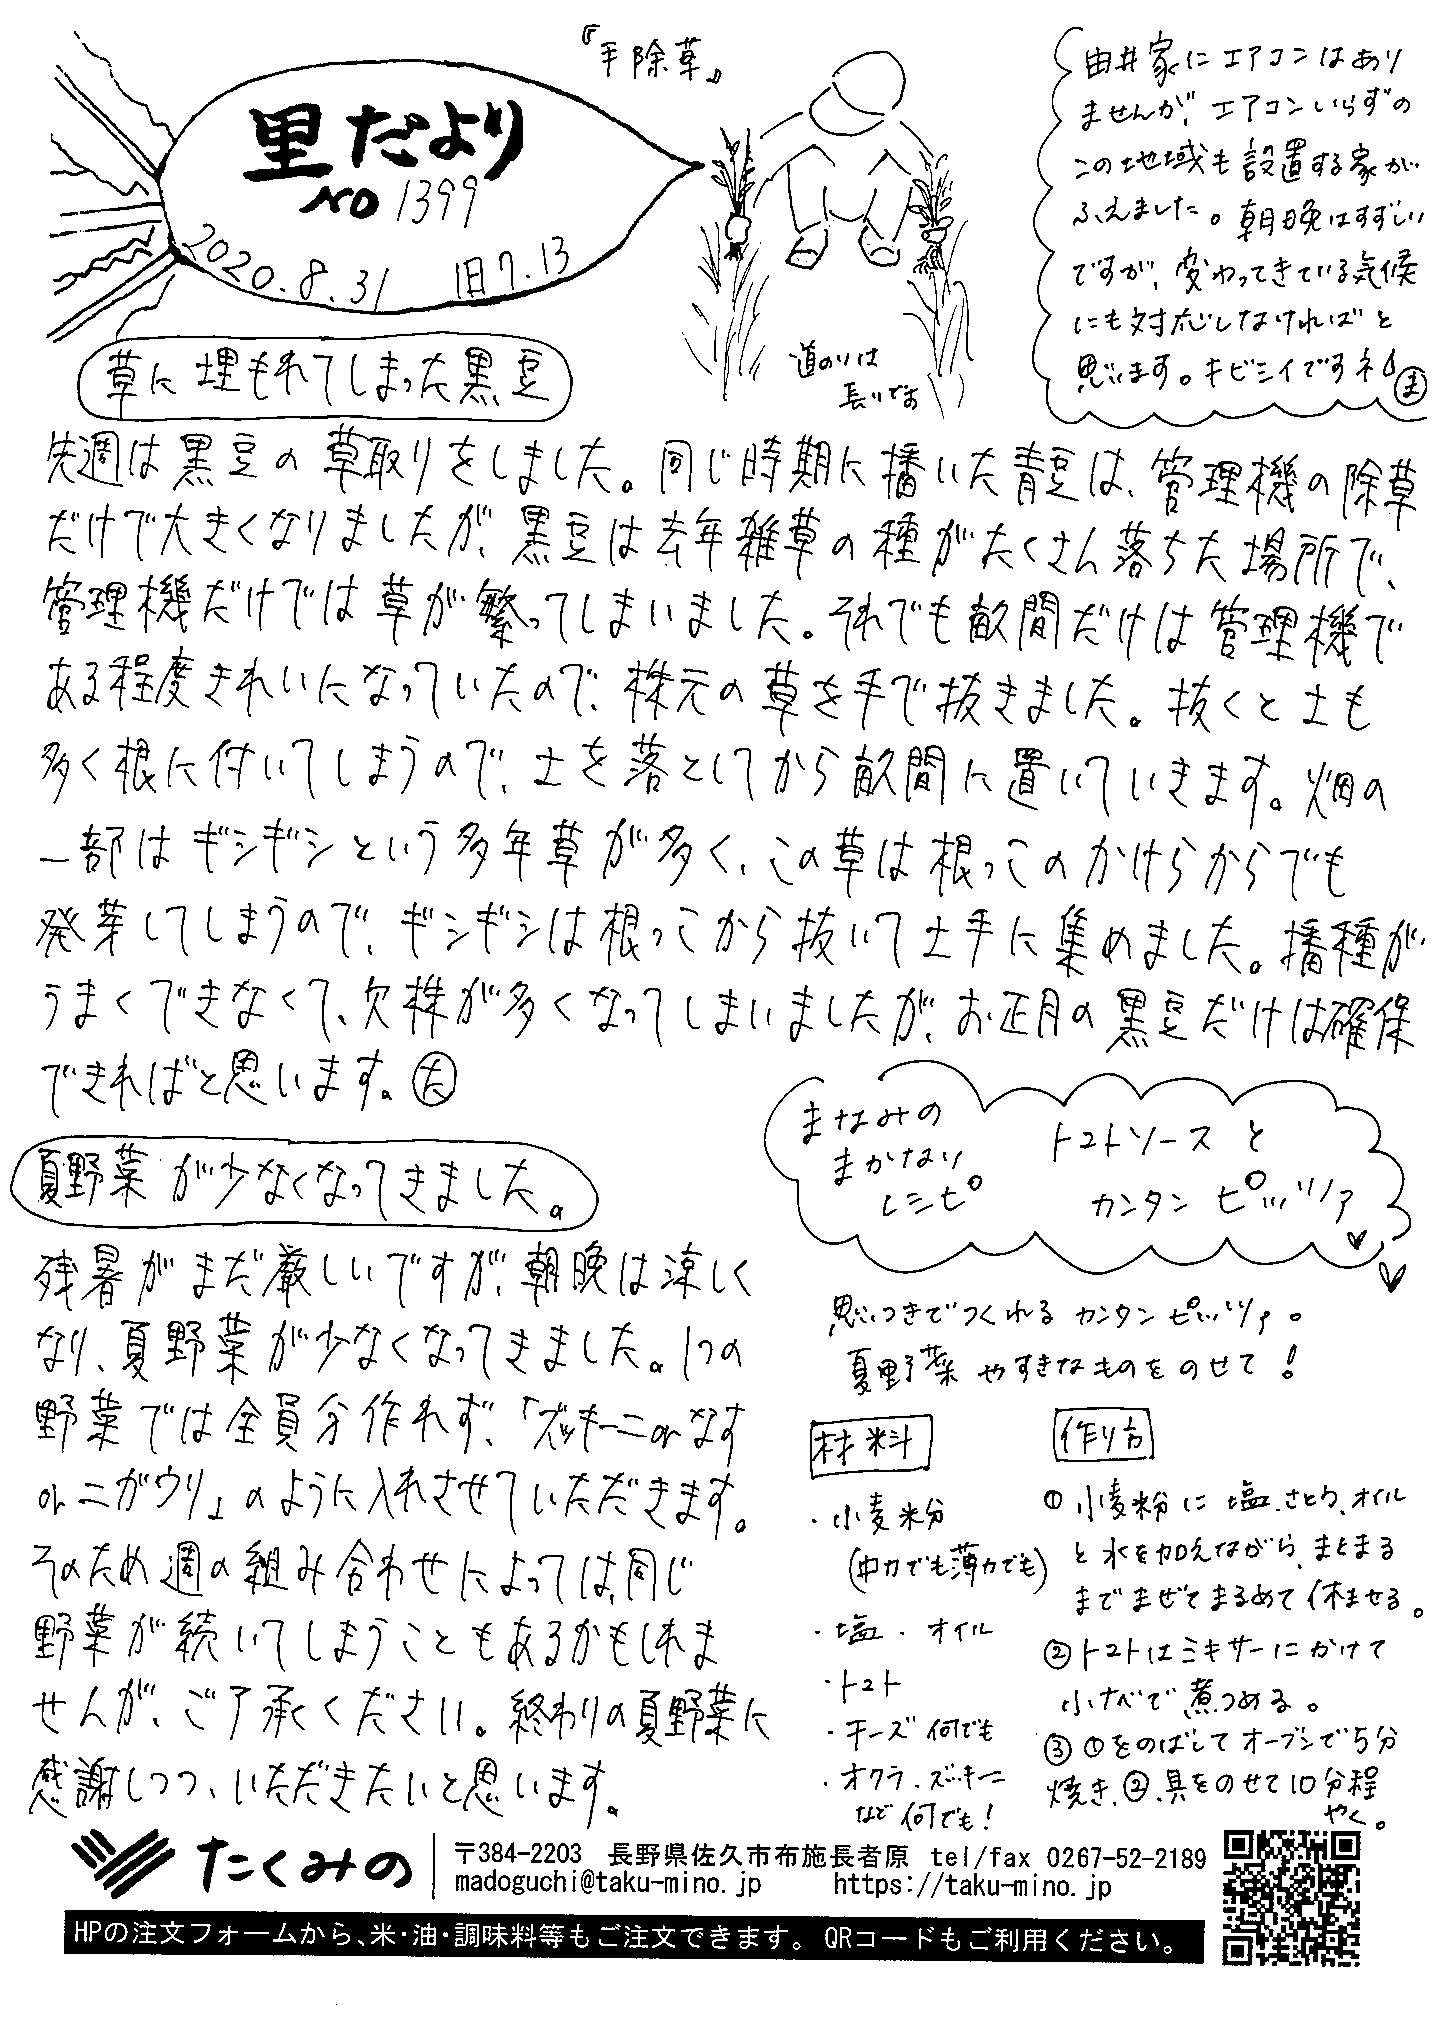 里だより
NO 1399
2020.8.31 旧7.13
『手除草』
道のりは
長いです
由井家にエアコンはあり
ませんが、エアコンいらずの
この地域も設置する家が
ふえました。朝晩はすずしい
ですが、変わってきている気候
にも対応しなければと
思います。キビシイですネ ま
草に埋もれてしまった黒豆
先週は黒豆の草取りをしました。同じ時期に播いた青豆は、管理機の除草
だけで大きくなりましたが、黒豆は去年雑草の種がたくさん落ちた場所で、
管理機だけでは草が繁ってしまいました。それでも畝間だけは管理機で
ある程度きれいになっていたので、株元の草を手で抜きました。抜くと土も
多く根に付いてしまうので、土を落としてから畝間に置いていきます。畑の
一部はギシギシという多年草が多く、この草は根っこのかけらからでも
発芽してしまうので、ギシギシは根っこから抜いて土手に集めました。播種が
うまくできなくて、欠株が多くなってしまいましたが、お正月の黒豆だけは確保
できればと思います。た
夏野菜が少なくなってきました。
残暑がまだ厳しいですが、朝晩は涼しく
なり、夏野菜が少なくなってきました。1つの
野菜では全員分作れず、「ズッキーニorなす
orニガウリ」のように入れさせていただきます。
そのため週の組み合わせによっては、同じ
野菜が続いてしまうこともあるかもしれま
せんが、ご了承ください。終わりの夏野菜に
感謝しつつ、いただきたいと思います。
まなみの
まかない
レシピ
トマトソースと
カンタンピッツァ
思いつきでつくれるカンタンピッツァ。
夏野菜やすきなものをのせて！
材料
・小麦粉
(中力でも薄力でも)
・塩・オイル
・トマト
・チーズ何でも
・オクラ、ズッキーニ
など何でも！
作り方
①小麦粉に塩、さとう、オイル
と水を加えながら、まとまる
までまぜてまるめて休ませる。
②トマトはミキサーにかけて
小ナベで煮つめる。
③①をのばしてオーブンで5分
焼き、②、具をのせて10分程
やく。
たくみの
〒384-2203 長野県佐久市布施長者原 tel/fax 0267-52-2189
madoguchi@taku-mino.jp https://taku-mino.jp
HPの注文フォームから、米・油・調味料等もご注文できます。QRコードもご利用ください。